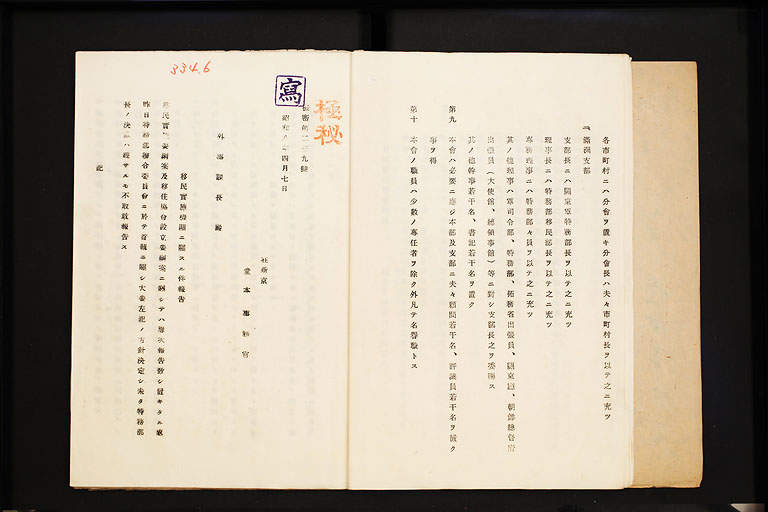 各市町村ニハ分會ヲ置キ分會長ハ夫々市町村長ヲ以テ之ニ充ツ
二、滿洲支部
支部長ニハ關東軍特務部長ヲ以テ之ニ充ツ
理事長ニハ特務部移民部長ヲ以テ之ニ充ツ
專務理事ニハ特務部々員ヲ以テ之ニ充ツ
其ノ他理事ハ軍司令部、特務部、拓務省出張員、關東廳、朝鮮總督府
出張員(大使館、總領事館)等ニ對シ支部長之ヲ委囑ス
其ノ他幹事若干名、書記若干名ヲ置ク
第九 本會ハ必要ニ應ジ本部及支部ニ夫々顧問若干名、評議員若干名ヲ置ク
事ヲ得
第十 本會ノ職員ハ少數ノ專任者ヲ除ク外凡テ名譽職トス
334.6
寫
極秘
密第二三九號
昭和八年四月七日
在新京
堂本事務官
外事課長 殿
移民實施機關ニ關スル件報告
移民實施要綱案及移住協會設立要綱案ニ關シテハ屢次報告致シ置キタル處
昨日特務部聯合委員會ニ於テ首題ニ關シ大要左記ノ方針決定シ未タ特務部
長ノ決裁ハ經サルモ不取敢報告ス
記